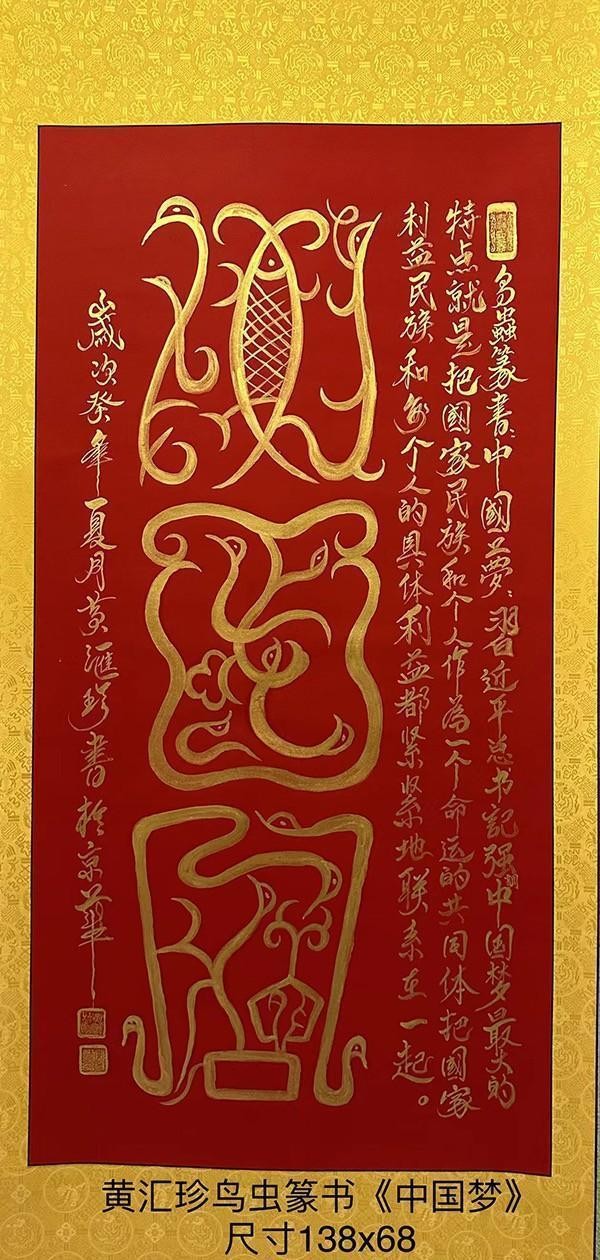 鸟蟲篆書中國之夢：習近平总书記强调中国梦最大的
特点就是把國家民族和个人作為一个命运的共同体把國家
利益民族和每个人的具体利益都紧紧地联系在一起。
中
国
梦
歲次癸卯年夏月黄滙珍書於京華
黄汇珍鸟虫篆书《中国梦》
尺寸138x68